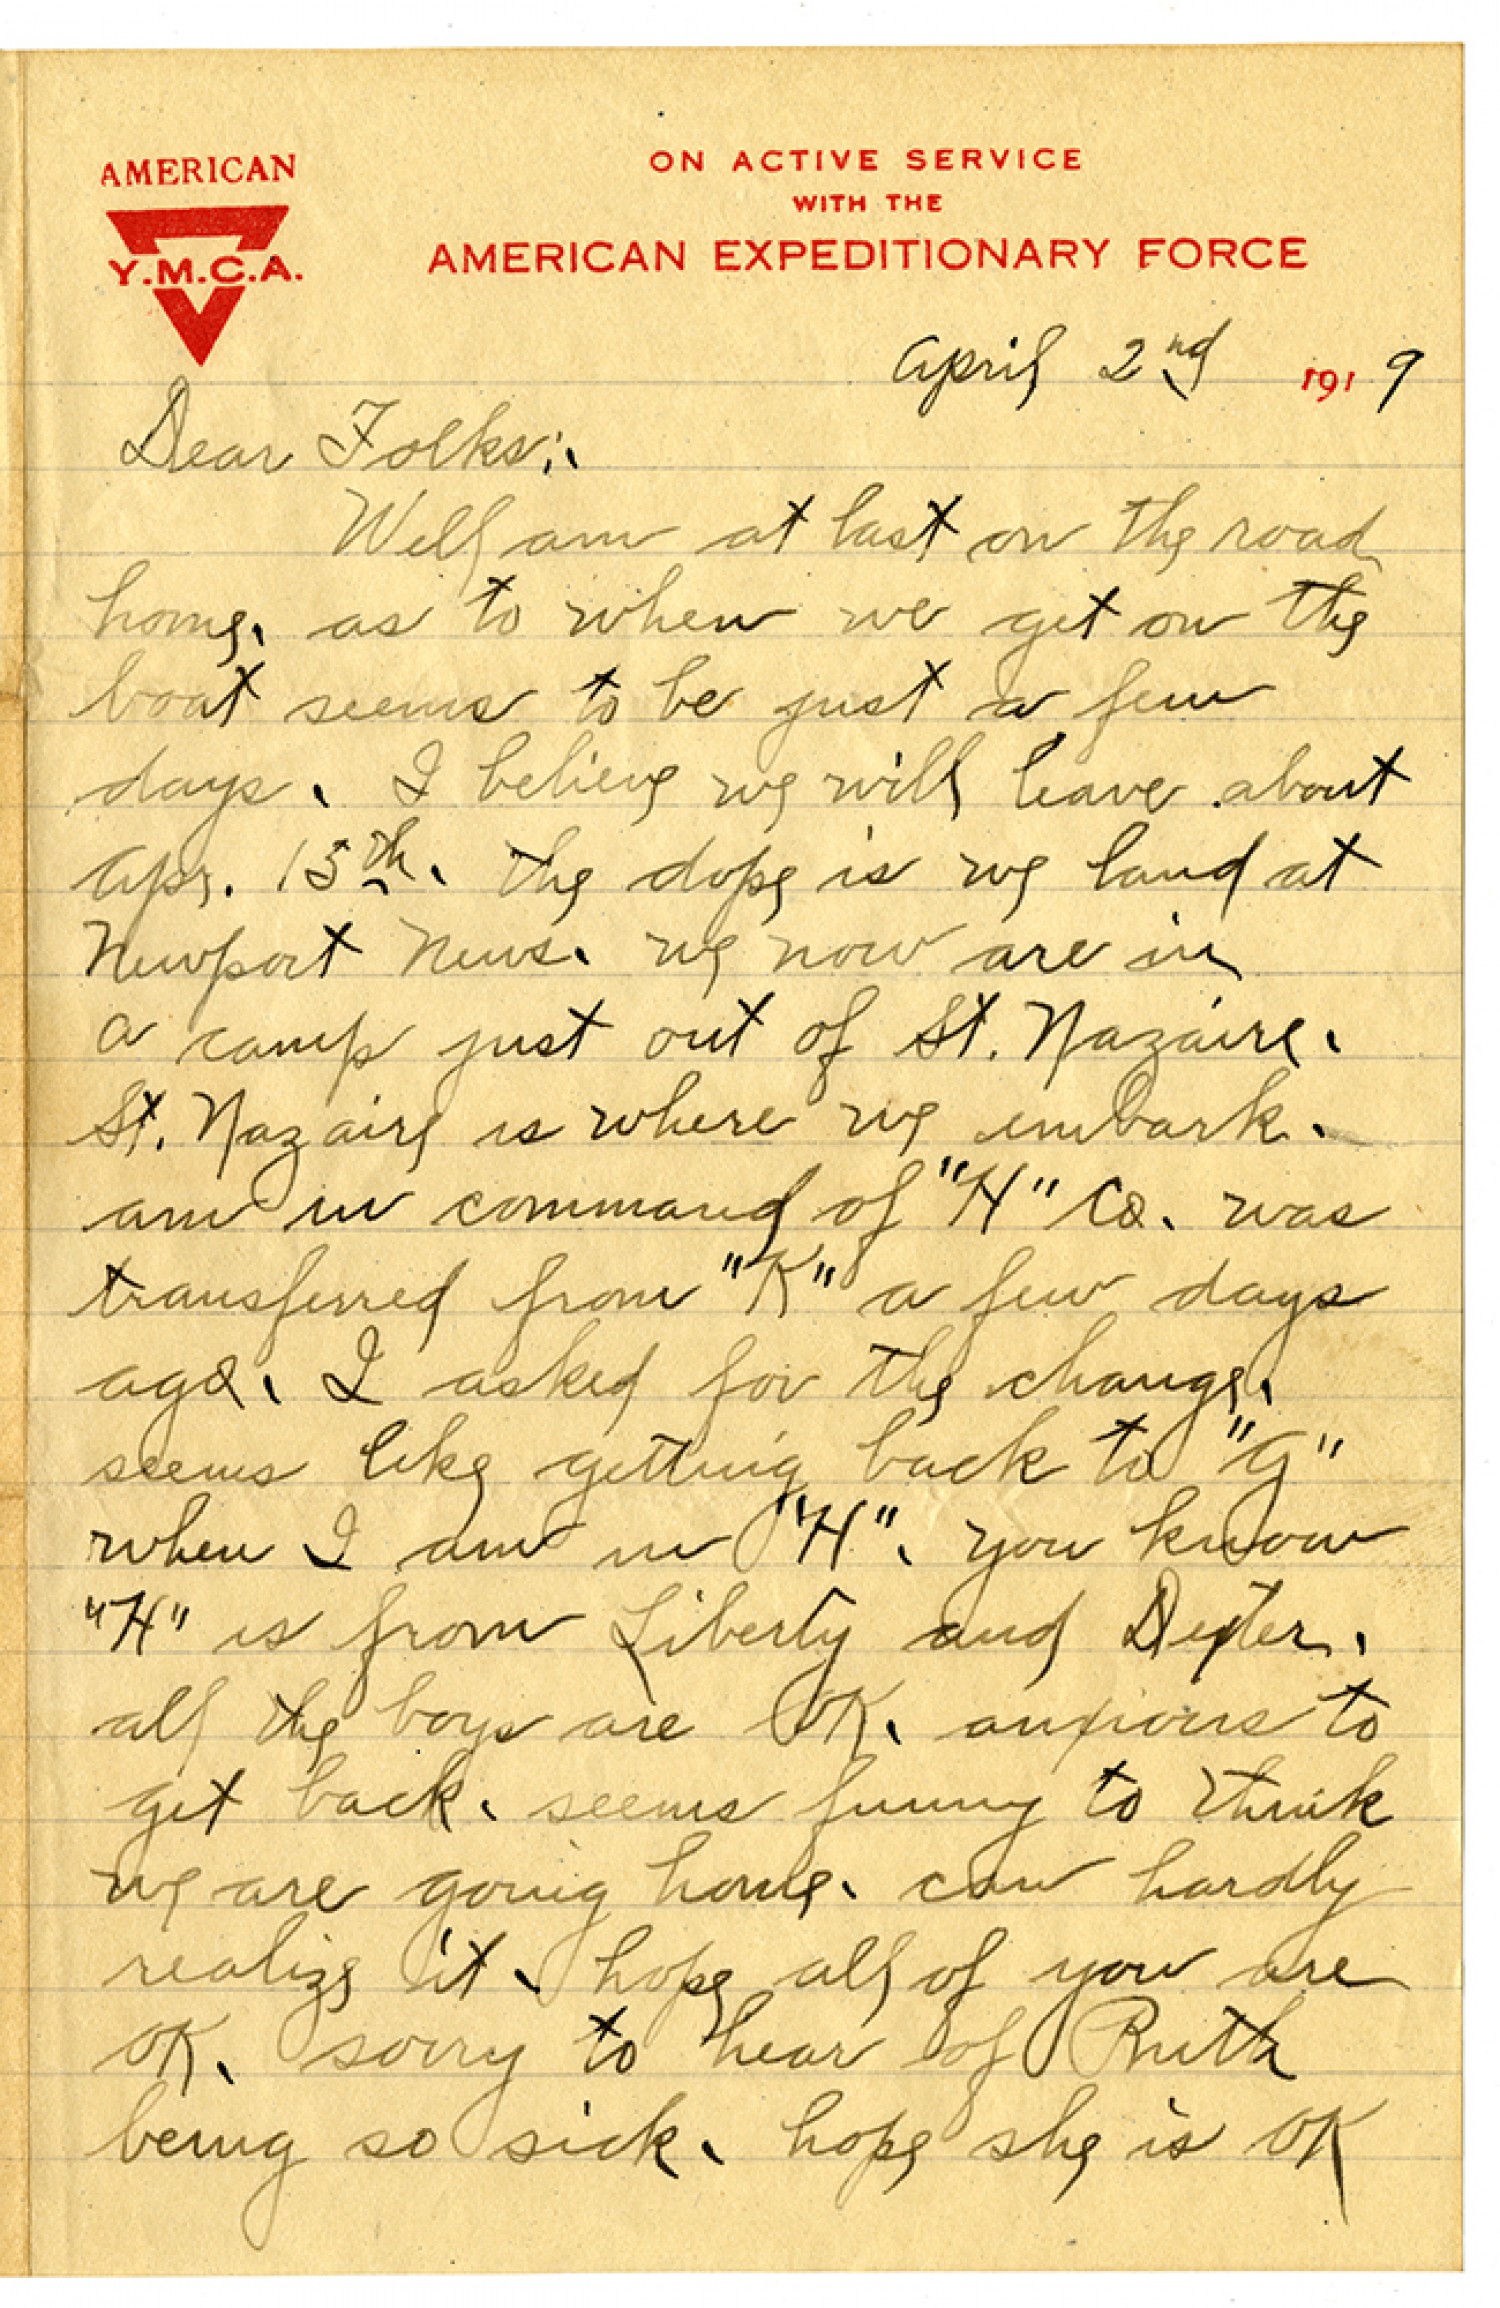 AMERICAN
Y.M.C.A.
ON ACTIVE SERVICE
WITH THE
AMERICAN EXPEDITIONARY FORCE
April 2nd 1919
Dear Folks:.
Well am at last on the road
home. as to when we get on the
boat seems to be just a few
days. I believe we will leave about
Apr. 15th. the dope is we land at
Newport News. we now are in
a camp just out of St. Nazaire.
St. Nazaire is where we embark.
am in command of "H" Co. was
transferred from "K" a few days
ago. I asked for the change.
seems like getting back to "G"
when I am in "H". you know
"H" is from Liberty and Dexter.
all the boys are OK. anxious to
get back. seems funny to think
we are going home. can hardly
realize it. hope all of you are
OK. sorry to hear of Ruth
being so sick. hope she is OK